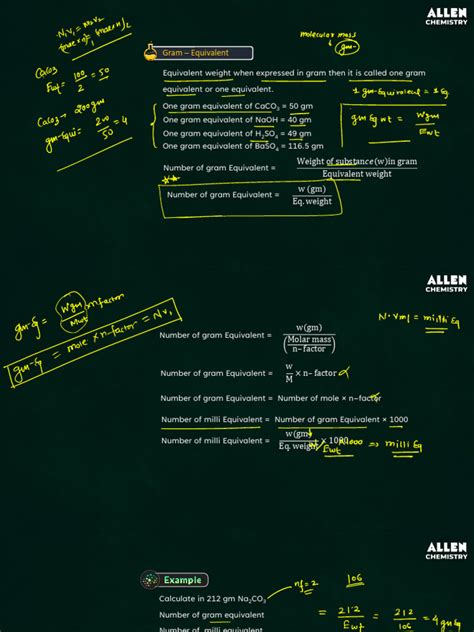 ALLEN
CHEMISTRY
N₁V₁ = N₂V₂
molecular mass
gm-
Gram – Equivalent
CaCO₃
Ewt = 100/2 = 50
CaCO₃ → 200gm
gm-Equi = 200/50 = 4
Equivalent weight when expressed in gram then it is called one gram
equivalent or one equivalent.
1 gm-Equivalent = 1 Eq
One gram equivalent of CaCO₃ = 50 gm
One gram equivalent of NaOH = 40 gm
One gram equivalent of H₂SO₄ = 49 gm
One gram equivalent of BaSO₄ = 116.5 gm
gm Eq wt = Wgm/Ewt
Number of gram Equivalent = Weight of substance (w)in gram / Equivalent weight
Number of gram Equivalent = w (gm) / Eq. weight
ALLEN
CHEMISTRY
gm-Eq = Wgm/Mwt × n factor
gm-Eq = mole × n-factor = N₁V₁
N·Vml = milli Eq
Number of gram Equivalent = w(gm) / (Molar mass / n– factor)
Number of gram Equivalent = w/M × n– factor
Number of gram Equivalent = Number of mole × n–factor
Number of milli Equivalent = Number of gram Equivalent × 1000
Number of milli Equivalent = w(gm) / Eq. weight × 1000
Ewt × 1000 ⇒ milli Eq
ALLEN
CHEMISTRY
Example
Calculate in 212 gm Na₂CO₃
nf = 2
106
Number of gram equivalent
= 212/Ewt = 212/106 = 4 gm Eq
Number of milli equivalent